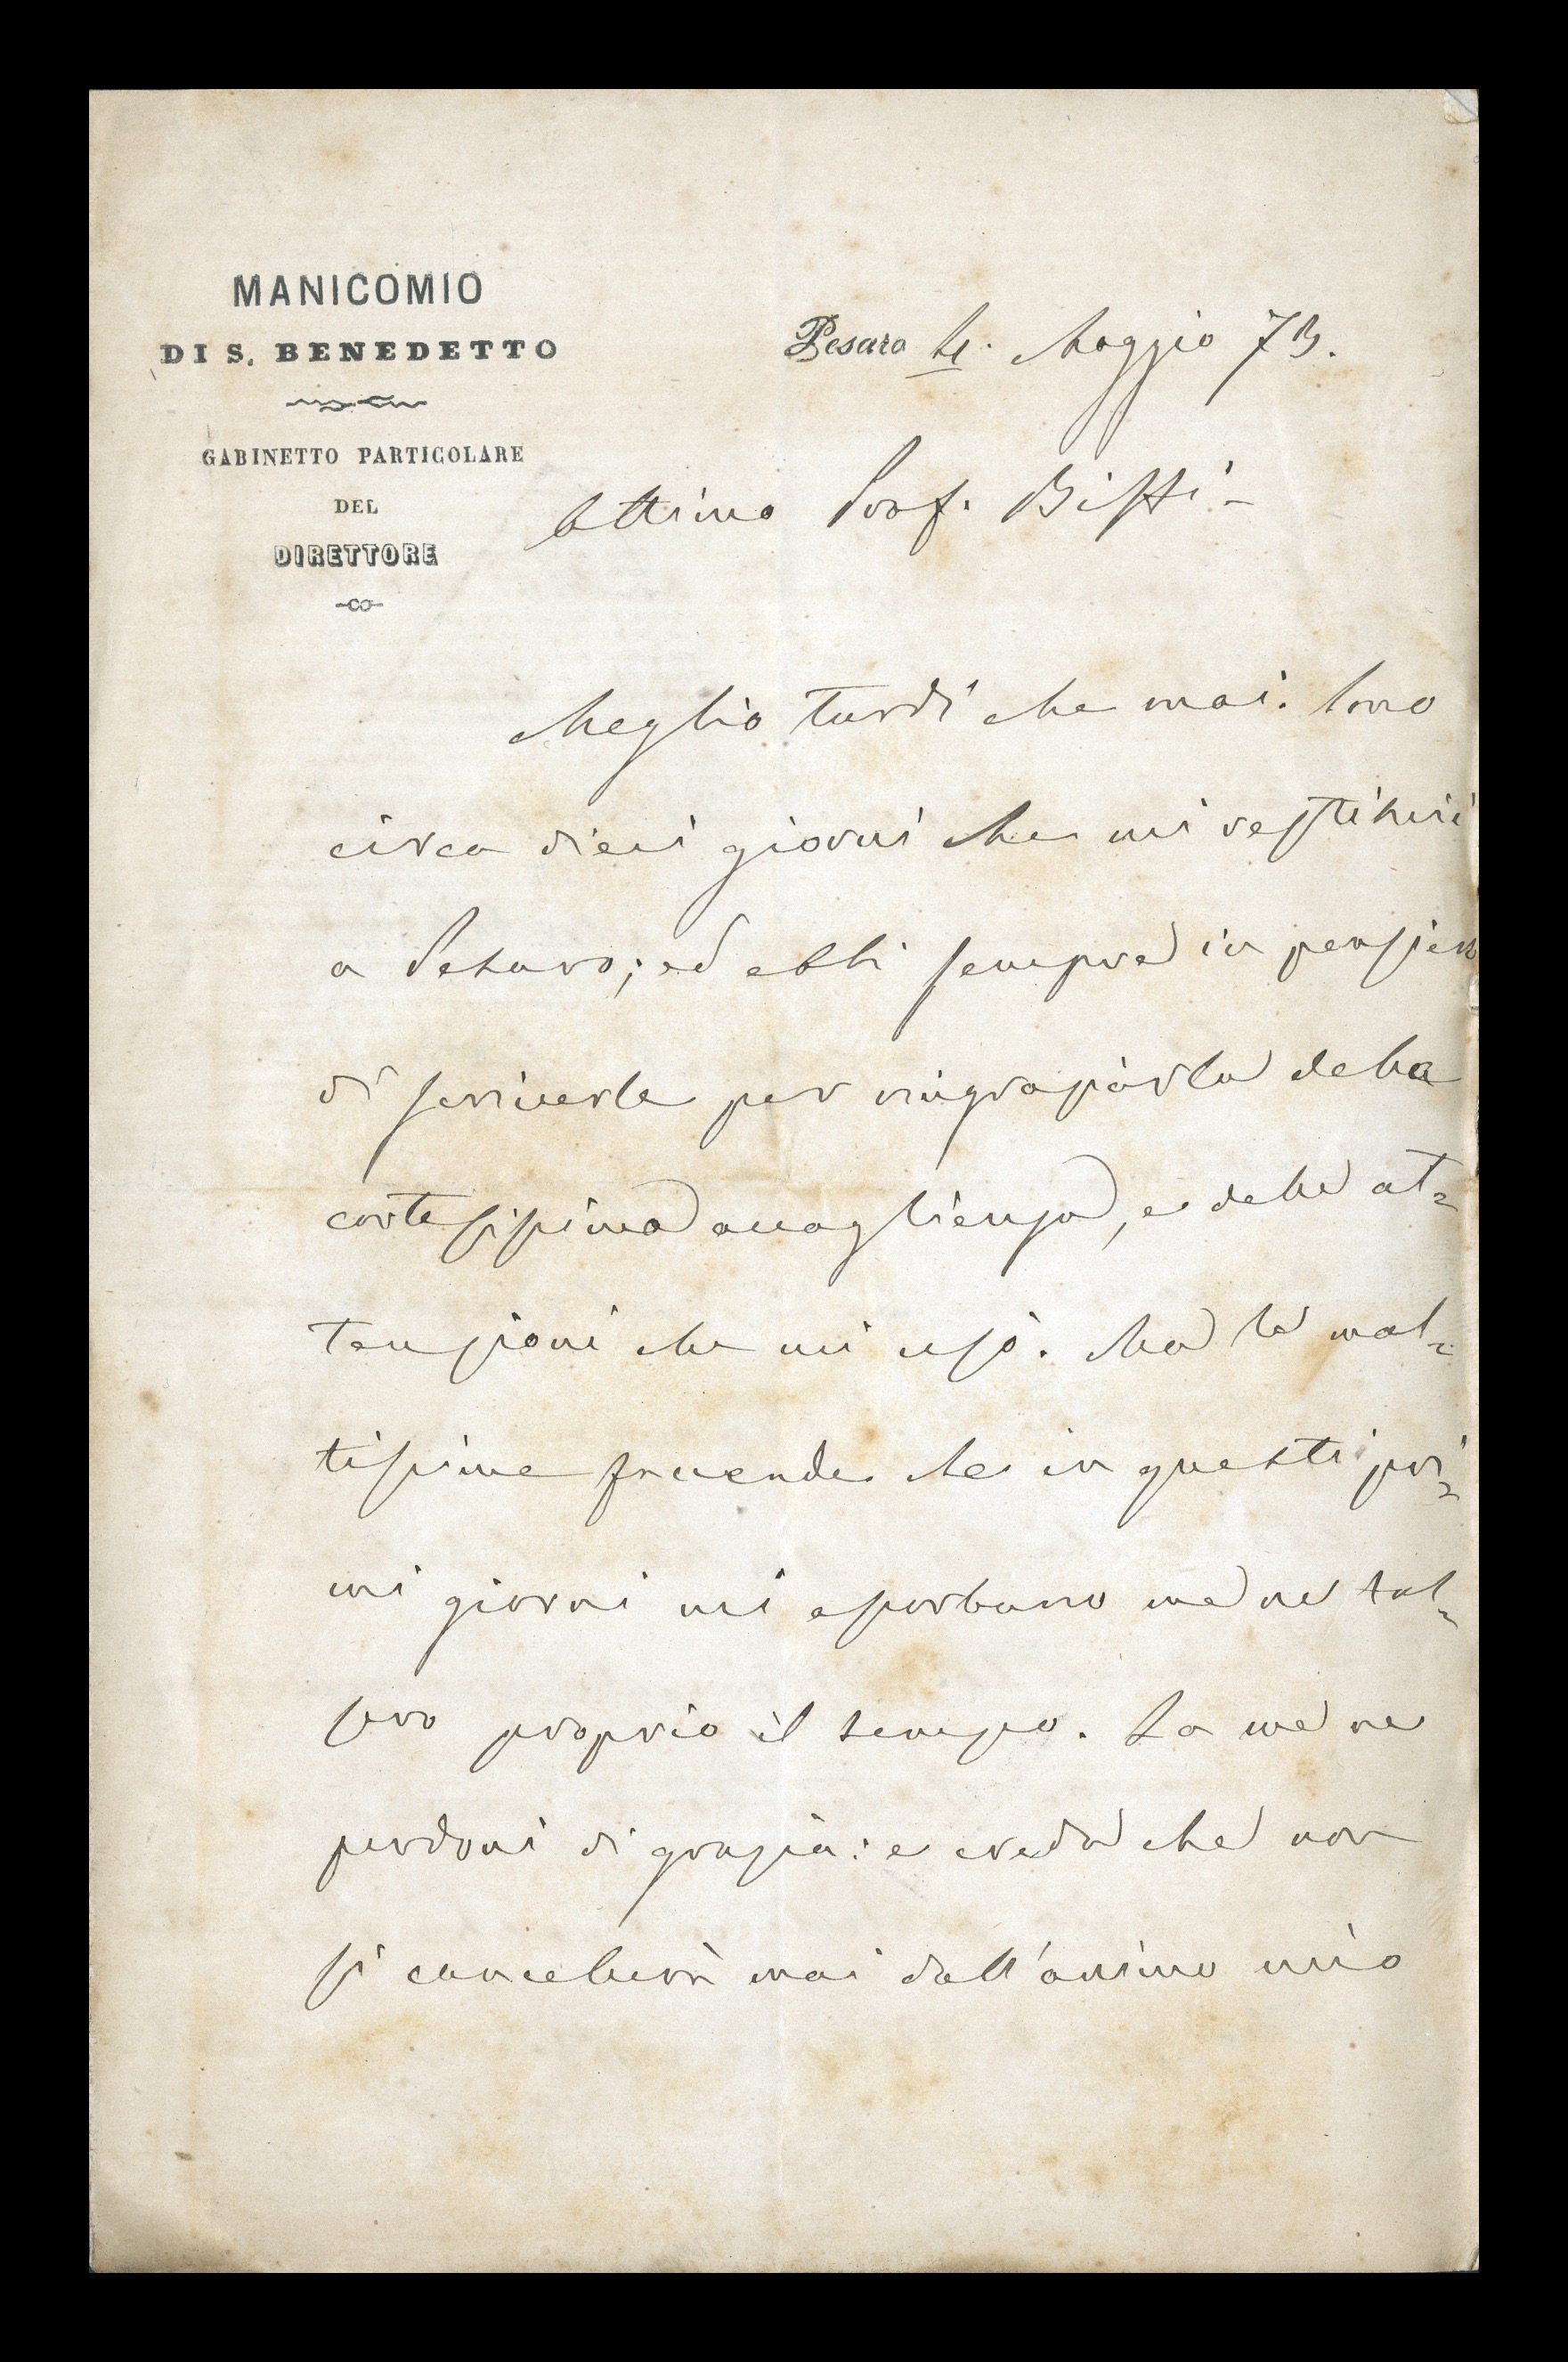 MANICOMIO
DI S. BENEDETTO
GABINETTO PARTICOLARE
DEL
DIRETTORE
Pesaro 4. Maggio 73.
Ottimo Prof. Biffi -
Meglio tardi che mai. Sono
circa dieci giorni che mi restituii
a Pesaro; ed ebbi sempre in pensiero
di scriverle per ringraziarla della
cortesissima accoglienza, e delle at=
tenzioni che mi usò. Ma le mol=
tissime faccende che in questi pri=
mi giorni mi assorbano me ne tol=
sero proprio il tempo. La me ne
perdoni di grazia: e creda che non
si cancellerà mai dall'animo mio